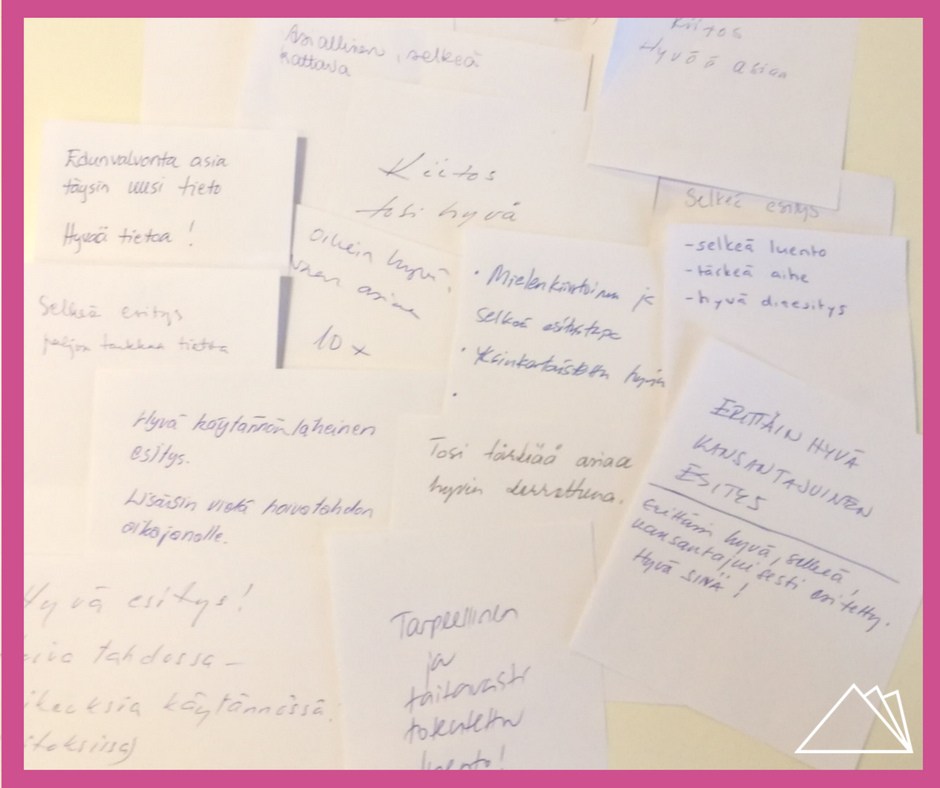 Asiallinen, selkeä
kattava
Kiitos
Hyvää asiaa
Edunvalvonta asia
täysin uusi tieto
Hyvää tietoa!
Kiitos
tosi hyvä
Oikein hyvä,
asiaa
10 x
Selkeä esitys
- selkeä luento
- tärkeä aihe
- hyvä diaesitys
• Mielenkiintoinen ja
selkeä esitystapa
• Yksinkertaistettu hyvin
•
Selkeä esitys
paljon tarkkaa tietoa
Hyvä käytännönläheinen
esitys.
Lisäisin vielä hoivatahdon
aikajanalle.
Tosi tärkeää asiaa
hyvin kerrottuna.
ERITTÄIN HYVÄ
KANSANTAJUINEN
ESITYS
Erittäin hyvä, selkeä,
kansantajuisesti esitetty.
Hyvä SINÄ!
Hyvä esitys!
tahdossa –
käytännössä.
Tarpeellinen
ja
taitavasti
toteutettu
luento!